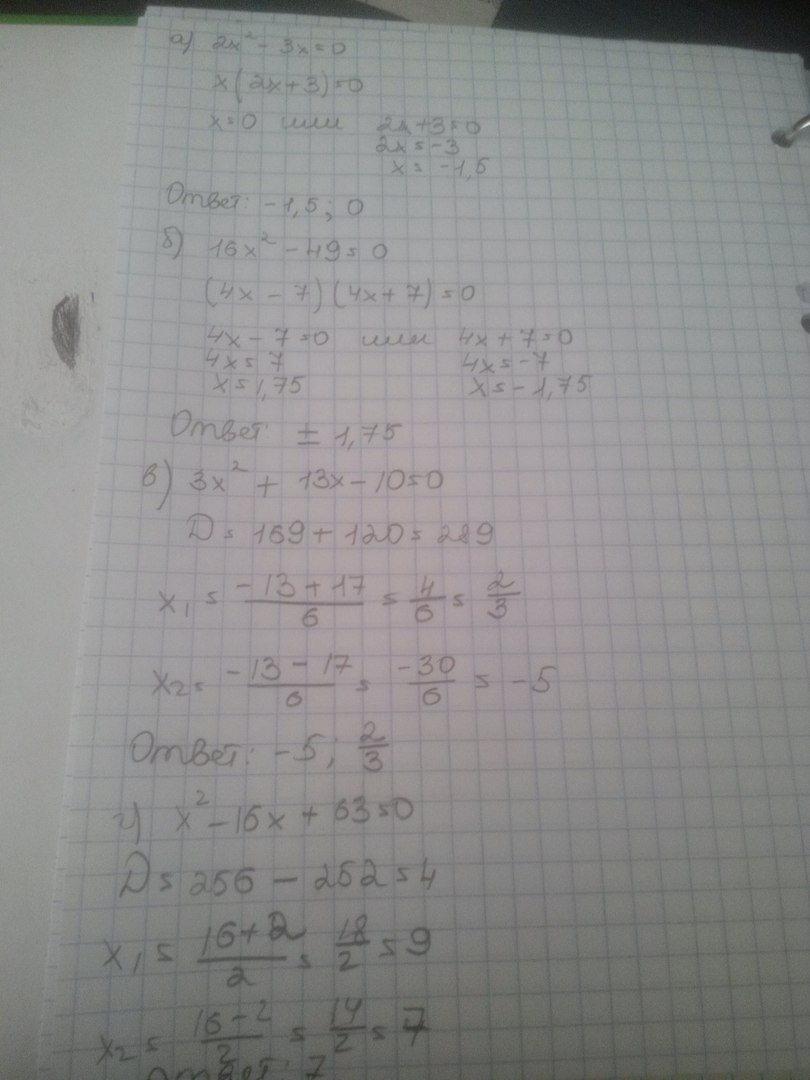 а) 2x² - 3x = 0
x(2x+3)=0
x=0 или 2x+3=0
2x = -3
x = -1,5
Ответ: -1,5; 0
б) 16x² - 49 = 0
(4x - 7)(4x + 7) = 0
4x - 7 = 0 или 4x + 7 = 0
4x = 7 4x = -7
x = 1,75 x = -1,75
Ответ: ± 1,75
в) 3x² + 13x - 10 = 0
D = 169 + 120 = 289
x₁ = (-13 + 17)/6 = 4/6 = 2/3
x₂ = (-13 - 17)/6 = -30/6 = -5
Ответ: -5; 2/3
г) x² - 16x + 63 = 0
D = 256 - 252 = 4
x₁ = (16+2)/2 = 18/2 = 9
x₂ = (16-2)/2 = 14/2 = 7
Ответ: 7